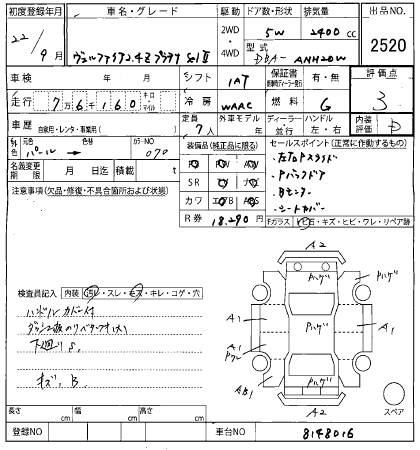 初度登録年月 車名・グレード 駆動 ドア数・形状 排気量 出品NO
22/9月 ヴェルファイア2.4Z プラチナ Sel Ⅱ 2WD・4WD 5W 2400cc 2520
型式 DBA- ANH20W
車検 年 月 シフト IAT 保証書 有・無 評価点
走行 7万6千160 キロ・マイル 冷房 WAAC 燃料 G 3
車歴 自家用・レンタ・事業用( ) 定員 7人 外車モデル 年 ディーラー・並行 ハンドル 左・右 内装評価 D
外色 元色 パール → 色替 カラーNO 070
装備品(純正品に限る)
セールスポイント(正常に作動するもの)
名義変更期限 月 日迄 積載 t
SR
カワ エアB ABS
R券 18.290円
・左右Pスライド
・Pバックドア
・Bモニター
・シートカバー
注意事項(欠品・修復・不具合箇所および状態)
Fガラス トビ石・キズ・ヒビ・ワレ・リペア跡
A2
Pハゲ Pハゲ
検査員記入 内装 汚レ・スレ・モス・キレ・コゲ・穴
ハンドルカバー付
A1 Pハゲ A1
下廻りS.
キズ、B.
AB1 Pハゲ
A2
スペア
長さ cm 幅 cm 高さ cm
登録NO 車台NO 8148016